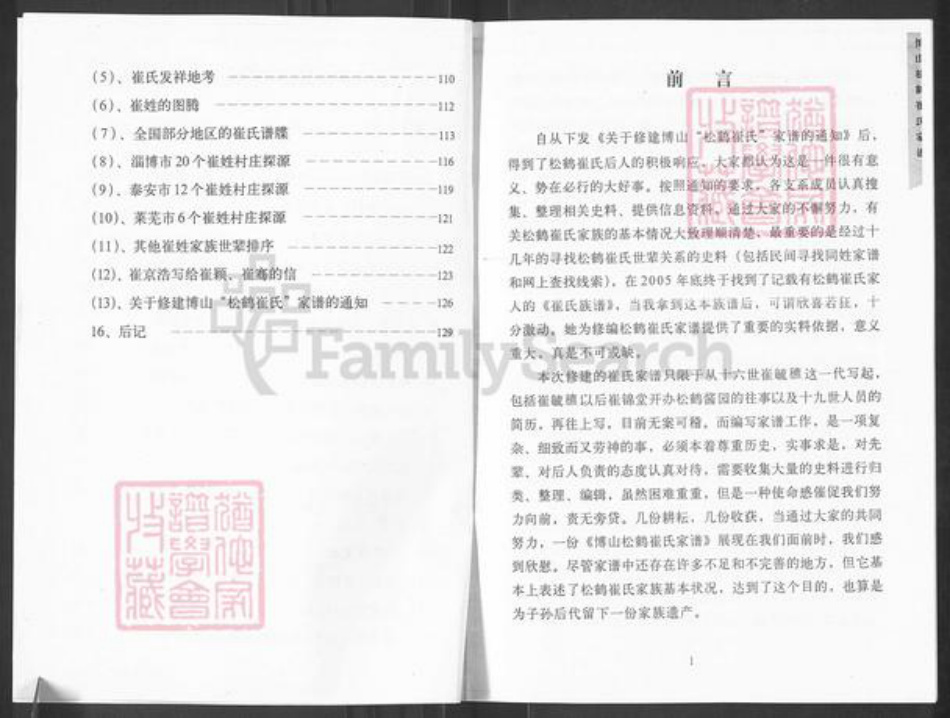 (5)、崔氏发祥地考 ——————————————110
(6)、崔姓的图腾 ——————————————112
(7)、全国部分地区的崔氏谱牒 ——————————113
(8)、淄博市20个崔姓村庄探源 ——————————116
(9)、泰安市12个崔姓村庄探源 ——————————119
(10)、莱芜市6个崔姓村庄探源 ——————————121
(11)、其他崔姓家族世辈排序 ——————————122
(12)、崔京浩写给崔颖、崔骞的信 ————————123
(13)、关于修建博山“松鹤崔氏”家谱的通知 ————126
16、后记 ————————————————129
前 言
自从下发《关于修建博山“松鹤崔氏”家谱的通知》后，
得到了松鹤崔氏后人的积极响应，大家都认为这是一件很有意
义、势在必行的大好事。按照通知的要求，各支系成员认真搜
集、整理相关史料、提供信息资料，通过大家的不懈努力，有
关松鹤崔氏家族的基本情况大致理顺清楚，最重要的是经过十
几年的寻找松鹤崔氏世辈关系的史料（包括民间寻找同姓家谱
和网上查找线索），在2005年底终于找到了记载有松鹤崔氏家
人的《崔氏族谱》，当我拿到这本族谱后，可谓欣喜若狂，十
分激动，她为修编松鹤崔氏家谱提供了重要的实料依据，意义
重大，真是不可或缺。
本次修建的崔氏家谱只限于从十六世崔毓樵这一代写起，
包括崔毓樵以后崔锦堂开办松鹤酱园的往事以及十九世人员的
简历，再往上写，目前无案可稽。而编写家谱工作，是一项复
杂、细致而又劳神的事，必须本着尊重历史，实事求是，对先
辈、对后人负责的态度认真对待，需要收集大量的史料进行归
类、整理、编辑，虽然困难重重，但是一种使命感催促我们努
力向前，责无旁贷。几份耕耘，几份收获，当通过大家的共同
努力，一份《博山松鹤崔氏家谱》展现在我们面前时，我们感
到欣慰。尽管家谱中还存在许多不足和不完善的地方，但它基
本上表述了松鹤崔氏家族基本状况，达到了这个目的，也算是
为子孙后代留下一份家族遗产。
1
博山松鹤崔氏家谱
FamilySearch